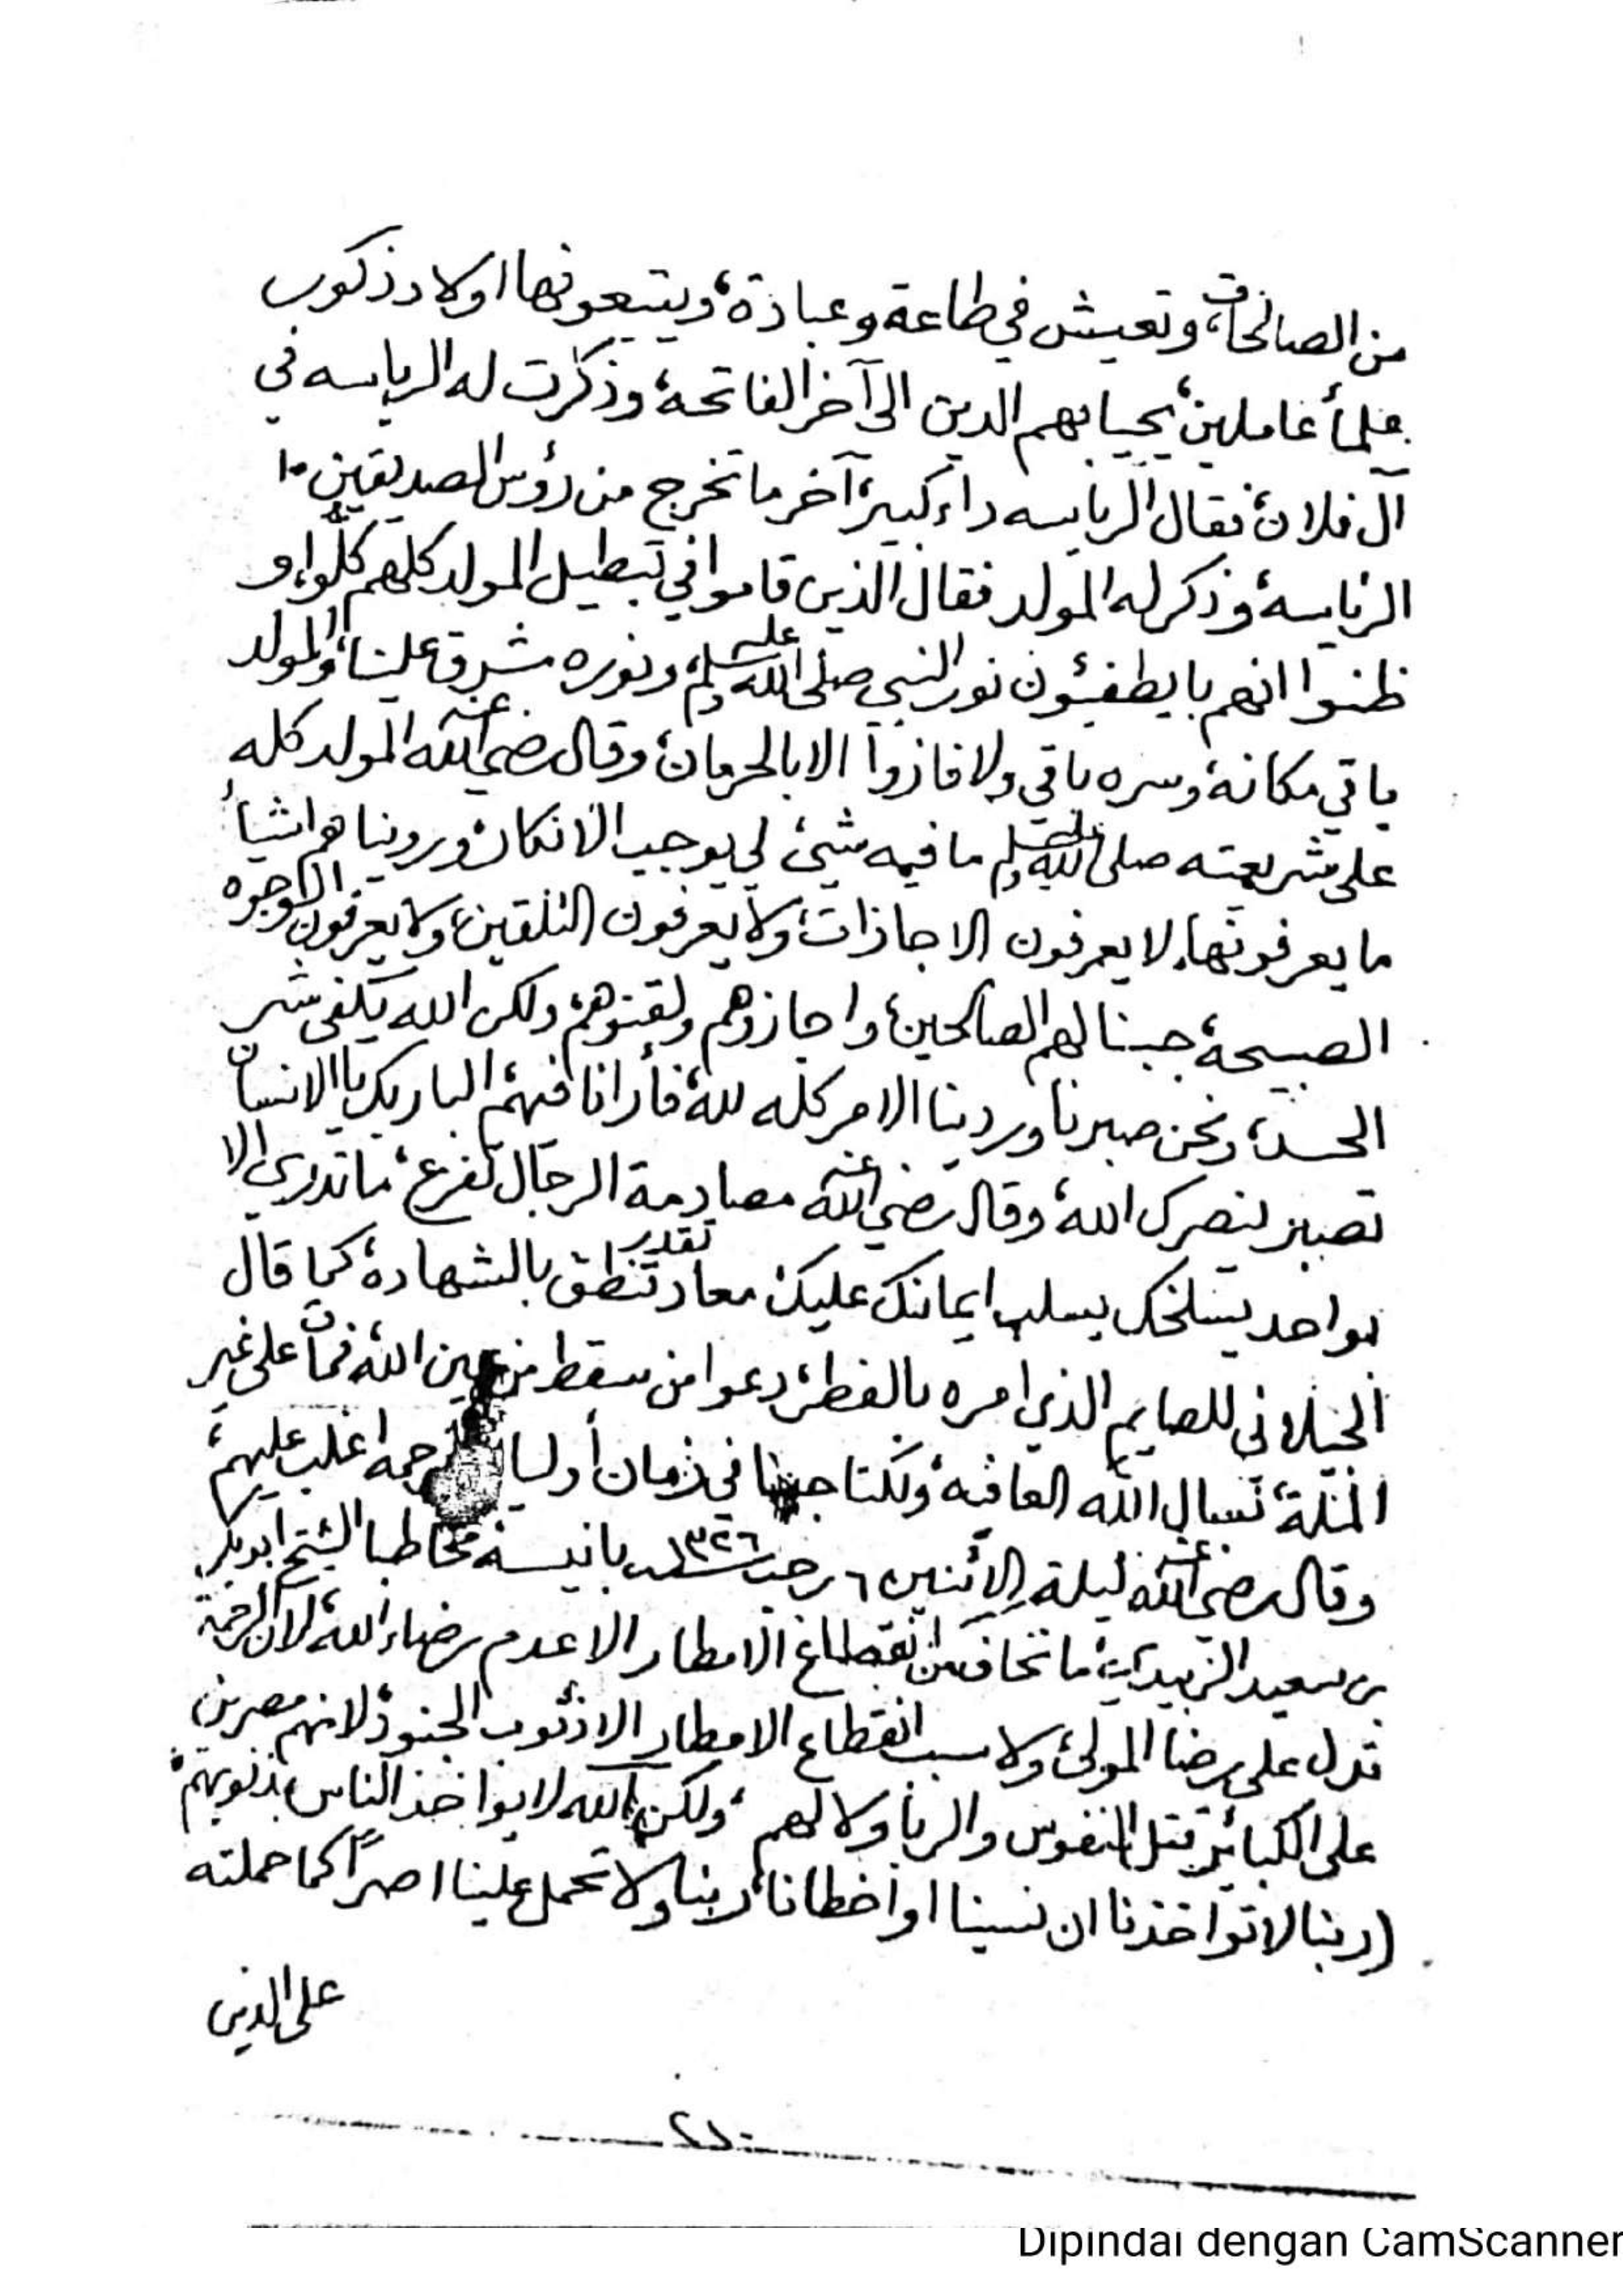 من الصالحات، وتعيش في طاعة وعبادة، ويتبعونها اولاد ذكور
علمأ عاملين، يحيا بهم الدين الى آخر الفاتحة، وذكرت له الرياسه في
آل فلان، فقال الرياسه داء كبير، آخر ما تخرج من رؤس الصديقين
الرياسة، وذكر له المولد فقال الذين قاموا في تبطيل المولد كلهم كلّوا، و
ظنوا انهم با يطفئون نور النبي صلى الله عليه وسلم، ونوره شرق علينا، والمولد
باقي مكانه، وسره باقي ولا فازوا الا بالحرمان، وقال رضي الله عنه المولد كله
على شريعته صلى الله عليه وسلم ما فيه شئ لي يوجب الانكار، وروينا هم اشيأ
ما يعرفونها، لا يعرفون الاجازات، ولا يعرفون التلقين، ولا يعرفون الوجوه
الصبيحة، جبنا لهم الصالحين، واجازوهم ولقنوهم، ولكن الله يكفى شر
الحسد، ونحن صبرنا وردينا الامر كله لله، فأرانا فيهم البار بك يا الانسان
تصبر لنصرك الله، وقال رضي الله عنه مصادمة الرجال تفزع، ما تدري الا
بواحد يسلخك يسلب ايمانك عليك، معاد تقدر تنطق بالشهادة، كما قال
الجيلاني للصايم الذي امره بالفطر، دعوا من سقط من عين الله، فمات على غير
الملة، نسال الله العافيه، ولكنا جينا في زمان أوليا الرحمه اغلب عليهم،
وقال رضي الله عنه ليلة الاثنين ٦ رجب سنة ١٣٢٦ بانيسة مخاطبا الشيخ ابوبكر
بن سعيد الزبيدي، ما تخاف من انقطاع الامطار الا عدم رضاء الله، لان الرحمة
تدل على رضا المولى، ولا سبب انقطاع الامطار الا ذنوب الجنود، لانهم مصرين
على الكبائر، قتل النفوس والربا ولا لهم، ولكن الله لا يواخذ الناس بذنوبهم،
(ربنا لا تواخذنا ان نسينا او اخطانا، ربنا ولا تحمل علينا اصرًا كما حملته
على الذين
Dipindai dengan CamScanner